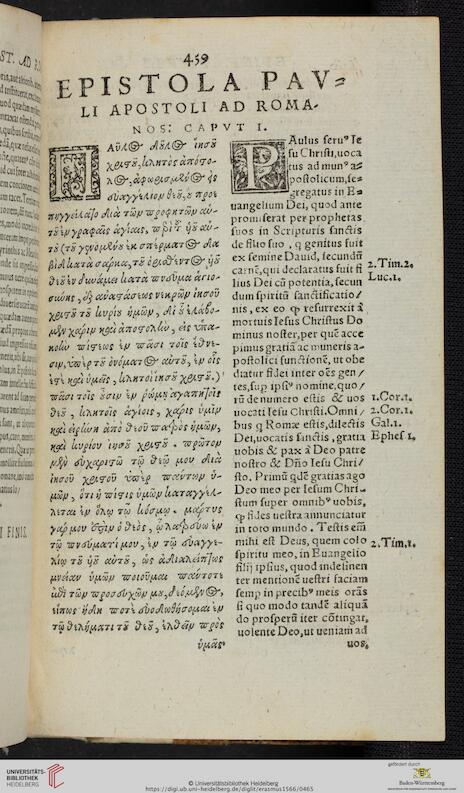 459
EPISTOLA PAV=
LI APOSTOLI AD ROMA-
NOS: CAPVT I.
Παῦλος δοῦλος ἰησοῦ
χριστοῦ, κλητὸς ἀπόστο-
λος, ἀφωρισμένος εἰς
εὐαγγέλιον θεοῦ, ὃ προε
πηγγείλατο διὰ τῶν προφητῶν αὐ-
τοῦ ἐν γραφαῖς ἁγίαις, περὶ τοῦ ὑοῦ αὐ-
τοῦ (τοῦ γενομένου ἐκ σπέρματος δα
βὶδ κατὰ σάρκα, τοῦ ὁρισθέντος ὑοῦ
θεοῦ ἐν δυνάμει κατὰ πνεῦμα ἁγιο-
σύνης, ἐξ ἀναστάσεως νεκρῶν ἰησοῦ
χριστοῦ τοῦ κυρίου ἡμῶν, δι' οὗ ἐλάβο-
μεν χάριν καὶ ἀποστολὴν, εἰς ὑπα-
κοὴν πίστεως ἐν πᾶσι τοῖς ἔθνε-
σιν, ὑπὲρ τοῦ ὀνόματος αὐτοῦ, ἐν οἷς
ἐστὲ καὶ ὑμεῖς, κλητοὶ ἰησοῦ χριστοῦ.)
πᾶσι τοῖς οὖσιν ἐν ῥώμῃ ἀγαπητοῖς
θεοῦ, κλητοῖς ἁγίοις, χάρις ὑμῖν
καὶ εἰρήνη ἀπὸ θεοῦ πατρὸς ἡμῶν,
καὶ κυρίου ἰησοῦ χριστοῦ. πρῶτον
μὲν εὐχαριστῶ τῷ θεῷ μου διὰ
ἰησοῦ χριστοῦ ὑπὲρ πάντων ὑ-
μῶν, ὅτι ἡ πίστις ὑμῶν καταγγέλ-
λεται ἐν ὅλῳ τῷ κόσμῳ. μάρτυς
γάρ μου ἐστὶν ὁ θεὸς, ᾧ λατρεύω ἐν
τῷ πνεύματί μου, ἐν τῷ εὐαγγε-
λίῳ τοῦ ὑοῦ αὐτοῦ, ὡς ἀδιαλείπτως
μνείαν ὑμῶν ποιοῦμαι πάντοτε
ἐπὶ τῶν προσευχῶν μου, δεόμενος,
εἴπως ἤδη ποτὲ εὐοδωθήσομαι ἐν
τῷ θελήματι τοῦ θεοῦ, ἐλθεῖν πρὸς
ὑμᾶς·
PAulus seruꝰ Ie
su Christi, uoca
tus ad munꝰ a-
postolicum, se-
gregatus in E-
uangelium Dei, quod ante
promiserat per prophetas
suos in Scripturis sanctis
de filio suo, q genitus fuit
ex semine Dauid, secundũ
carnẽ, qui declaratus fuit fi
lius Dei cũ potentia, secun
dum spiritũ sanctificatio/
nis, ex eo ꝙ resurrexit à
mortuis Iesus Christus Do
minus noster, per quẽ acce
pimus gratiã ac muneris a-
postolici functionẽ, ut obe
diatur fidei inter oẽs gen/
tes, sup ipsꝰ nomine, quo/
rũ de numero estis & uos
uocati Iesu Christi. Omni/
bus q Romæ estis, dilectis
Dei, uocatis sanctis, gratia
uobis & pax à Deo patre
nostro & Dño Iesu Chri/
sto. Primũ qdẽ gratias ago
Deo meo per Iesum Chri-
stum super omnibꝰ uobis,
ꝙ fides uestra annunciatur
in toto mundo. Testis em̃
mihi est Deus, quem colo
spiritu meo, in Euangelio
filij ipsius, quod indesinen
ter mentionẽ uestri faciam
semp in precibꝰ meis orãs
si quo modo tandẽ aliquã
do prosperũ iter cõtingat,
uolente Deo, ut ueniam ad
uos,
2. Tim. 2.
Luc. 1.
1. Cor. 1.
2. Cor. 1.
Gal. 1.
Ephes 1.
2. Tim, 1.
UNIVERSITÄTS-
BIBLIOTHEK
HEIDELBERG
© Universitätsbibliothek Heidelberg
https://digi.ub.uni-heidelberg.de/diglit/erasmus1566/0465
gefördert durch
Baden-Württemberg